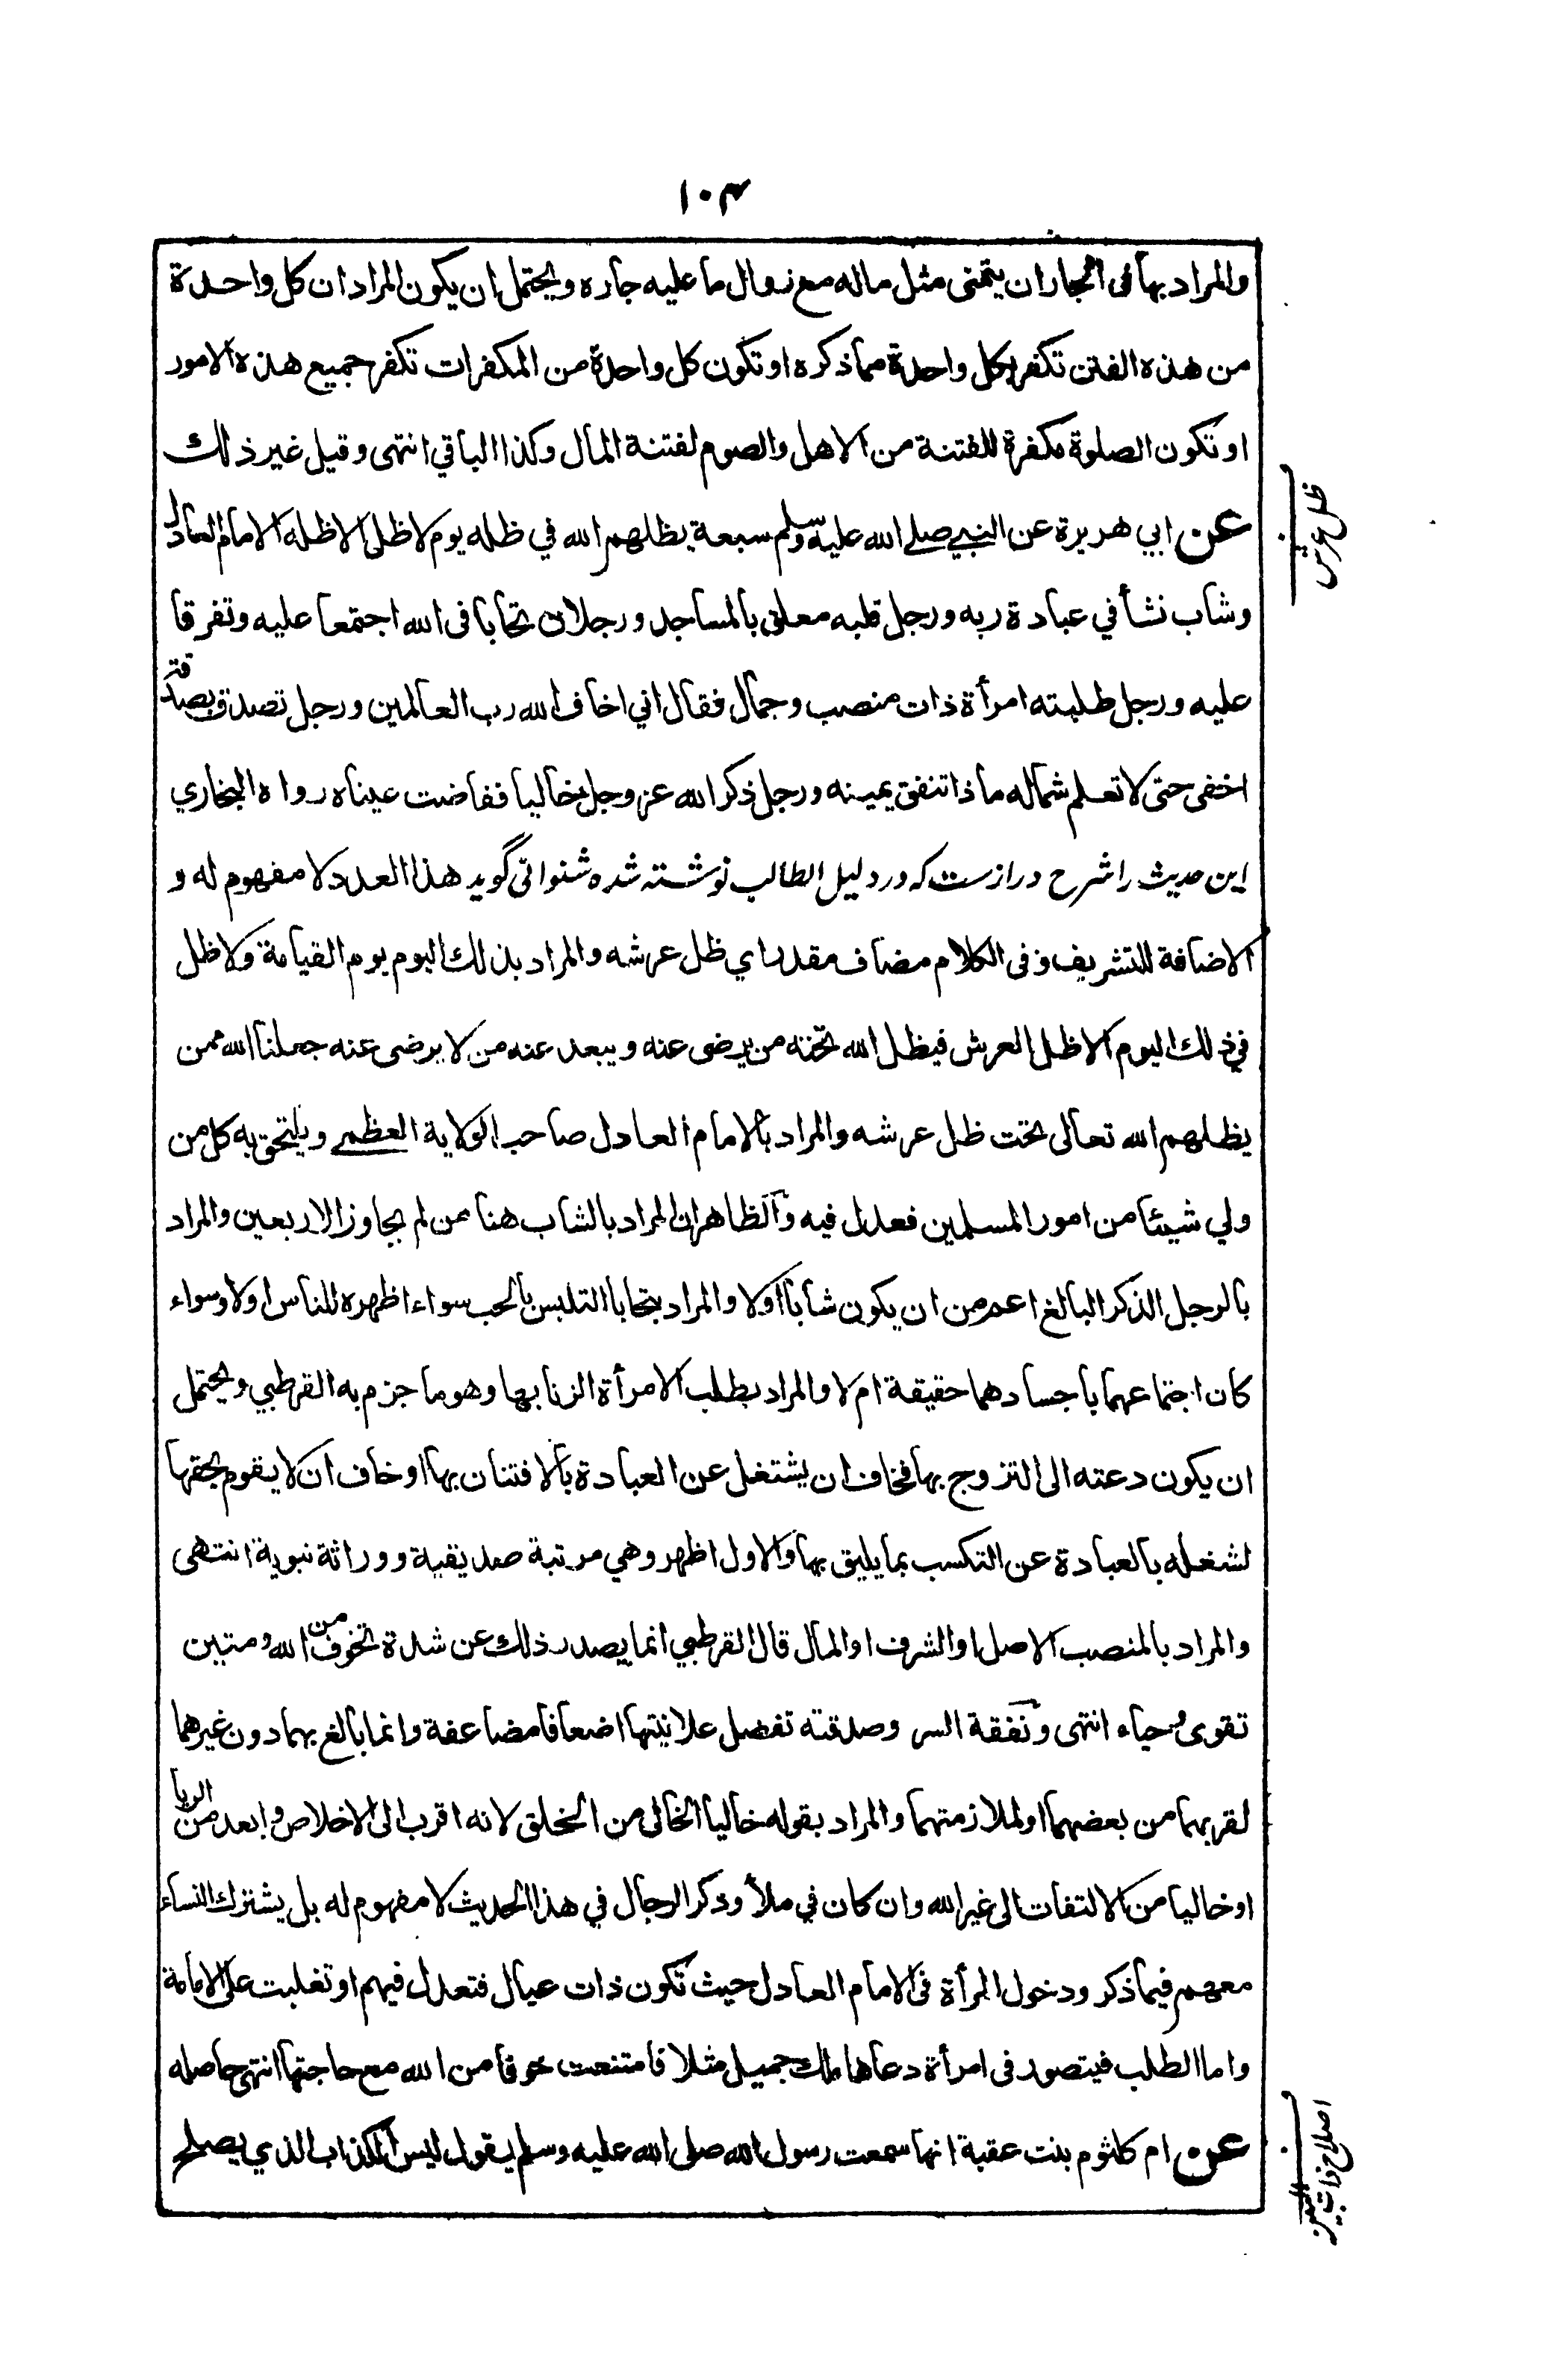 ١٠٣
والمراد بها فى الجار ان يتمنى مثل ماله مع زوال ما عليه جاره ويحتمل ان يكون المراد ان كل واحدة
من هذه الفتن تكفر بكل واحدة مما ذكره او تكون كل واحدة من المكفرات تكفر جميع هذه الامور
او تكون الصلوة مكفرة للفتنة من الاهل والصوم لفتنة المال وكذا الباقي انتهى وقيل غير ذلك
ظل عرش
عن ابي هريرة عن النبي صلے الله عليه وسلم سبعة يظلهم الله في ظله يوم لا ظل الا ظله الامام العادل
وشاب نشأ في عبادة ربه ورجل قلبه معلق بالمساجد ورجلان تحابا فى الله اجتمعا عليه وتفرقا
عليه ورجل طلبته امرأة ذات منصب وجمال فقال اني اخاف الله رب العالمين ورجل تصدق بصدقة
اخفى حتى لا تعلم شماله ماذا تنفق يمينه ورجل ذكر الله عز وجل خاليا ففاضت عيناه رواه البخاري
این حدیث را شرح درازست که در دلیل الطالب نوشته شده شنوانی گوید هذا العدد لا مفهوم له و
الاضافة للتشريف وفى الكلام مضاف مقدر اي ظل عرشه والمراد بذلك اليوم يوم القيامة ولا ظل
في ذلك اليوم الا ظل العرش فيظل الله تحته من يرضى عنه ويبعد عنه من لا يرضى عنه جعلنا الله ممن
يظلهم الله تعالى تحت ظل عرشه والمراد بالامام العادل صاحب الولاية العظمے ويلتحق به كل من
ولي شيئا من امور المسلمين فعدل فيه والظاهر ان المراد بالشاب هنا من لم يجاوز الاربعين والمراد
بالرجل الذكر البالغ اعم من ان يكون شابا اولا والمراد بتحابا التلبس بالحب سواء اظهره للناس اولا وسواء
كان اجتماعهما باجسادهما حقيقة ام لا والمراد بطلب الامرأة الزنا بها وهو ما جزم به القرطبي ويحتمل
ان يكون دعته الى التزوج بها فخاف ان يشتغل عن العبادة بالافتنان بها او خاف ان لا يقوم بحقها
لشغله بالعبادة عن التكسب بما يليق بها والاول اظهر وهي مرتبة صديقية ووراثة نبوية انتهى
والمراد بالمنصب الاصل او الشرف او المال قال القرطبي انما يصدر ذلك عن شدة تخوف من الله ومتين
تقوى وحياء انتهى ونفقة السر وصدقته تفضل علانيتها اضعافا مضاعفة وانما بالغ بهما دون غيرهما
لقربهما من بعضهما او لملازمتهما والمراد بقوله خاليا الخالى من الخلق لانه اقرب الى الاخلاص وابعد من الريا
او خاليا من الالتفات الى غير الله وان كان في ملأ وذكر الرجال في هذا الحديث لا مفهوم له بل يشترك النساء
معهم فيما ذكر ودخول المرأة فى الامام العادل حيث تكون ذات عيال فتعدل فيهم او تغلبت على الامامة
واما الطلب فيتصور فى امرأة دعاها ملك جميل مثلا فامتنعت خوفا من الله مع حاجتها انتهى حاصله
اصلاح ذات البين
عن ام كلثوم بنت عقبة انها سمعت رسول الله صلى الله عليه وسلم يقول ليس الكذاب الذي يصلح